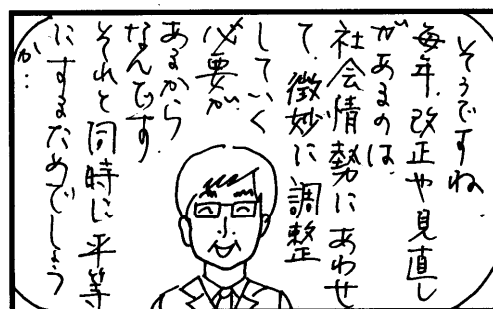 そうですね。
毎年、改正や見直し
があるのは、
社会情勢にあわせ
て、微妙に調整
していく
必要が
あるから
なんです。
それと同時に平等
にするためでしょう
か…